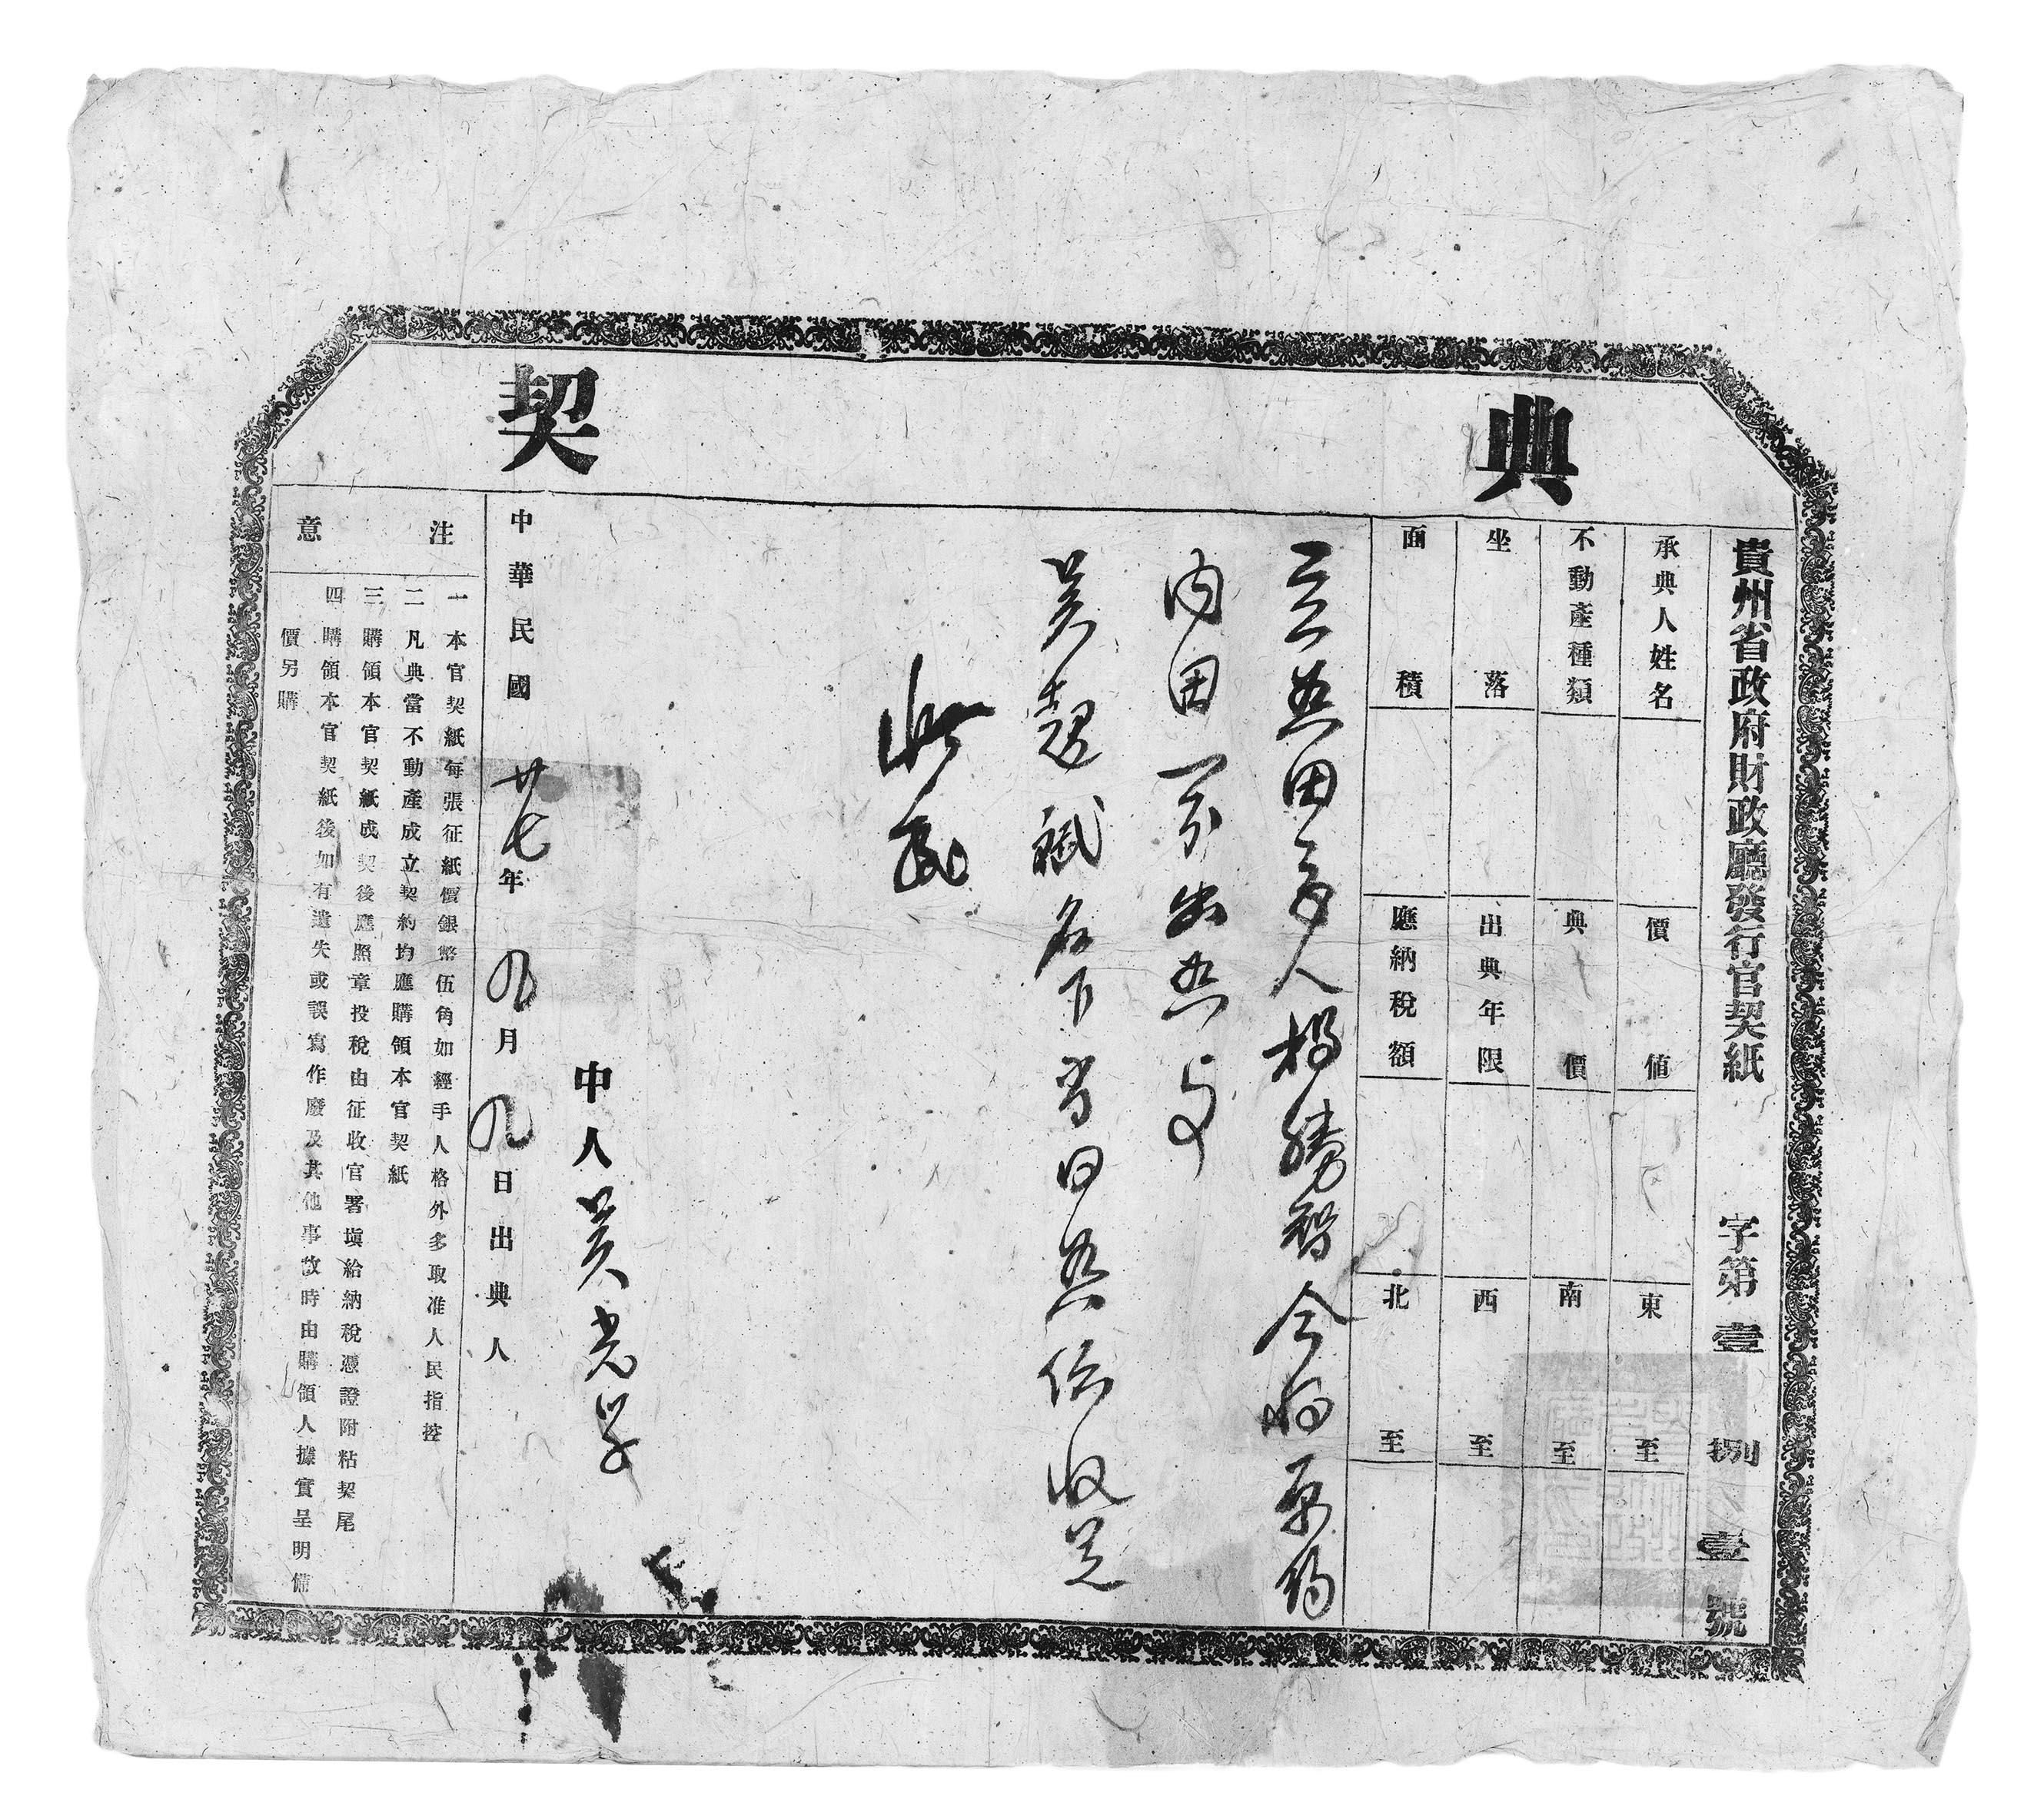 典契
貴州省政府財政廳發行官契紙 字第壹捌壹號
承典人姓名 價值 東至
不動產種類 典價 南至
坐落 出典年限 西至
面積 應納稅額 北至
立典田字人楊勝智今將原約
內田一分出典与
吳起斌名下当日典价收足
此處
中人吳光学
中華民國廿七年九月九日出典人
注意
一 本官契紙每張征紙價銀幣伍角如經手人格外多取准人民指控
二 凡典當不動產成立契約均應購領本官契紙
三 購領本官契紙成契後應照章投稅由征收官署塡給納稅憑證附粘契尾
四 購領本官契紙後如有遺失或誤寫作廢及其他事故時由購領人據實呈明備
價另購